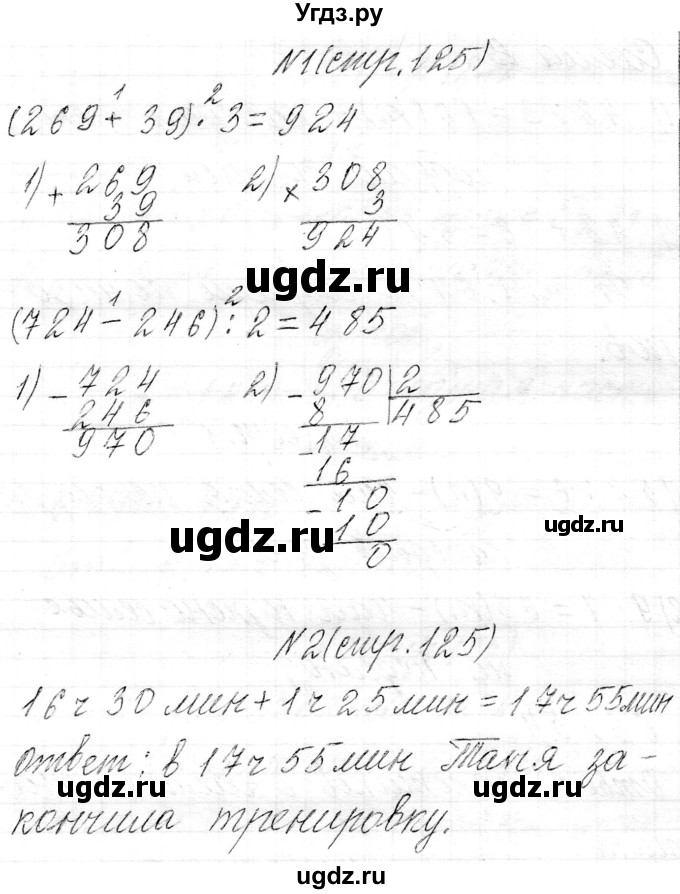 Угдз.ру
N1(стр.125)
(269 + 39) · 3 = 924
1 2
1) + 269 2) × 308
39 3
308 924
ugdz.ru
(724 − 246) : 2 = 485
1 2
1) − 724 2) − 970 | 2
246 8 485
970 − 17
16
− 10
10
0
ugdz.ru
ugdz.ru
N2(стр.125)
16ч 30мин + 1ч 25мин = 17ч 55мин
ответ: в 17ч 55мин Таня за-
кончила тренировку.
ugdz.ru
ugdz.ru